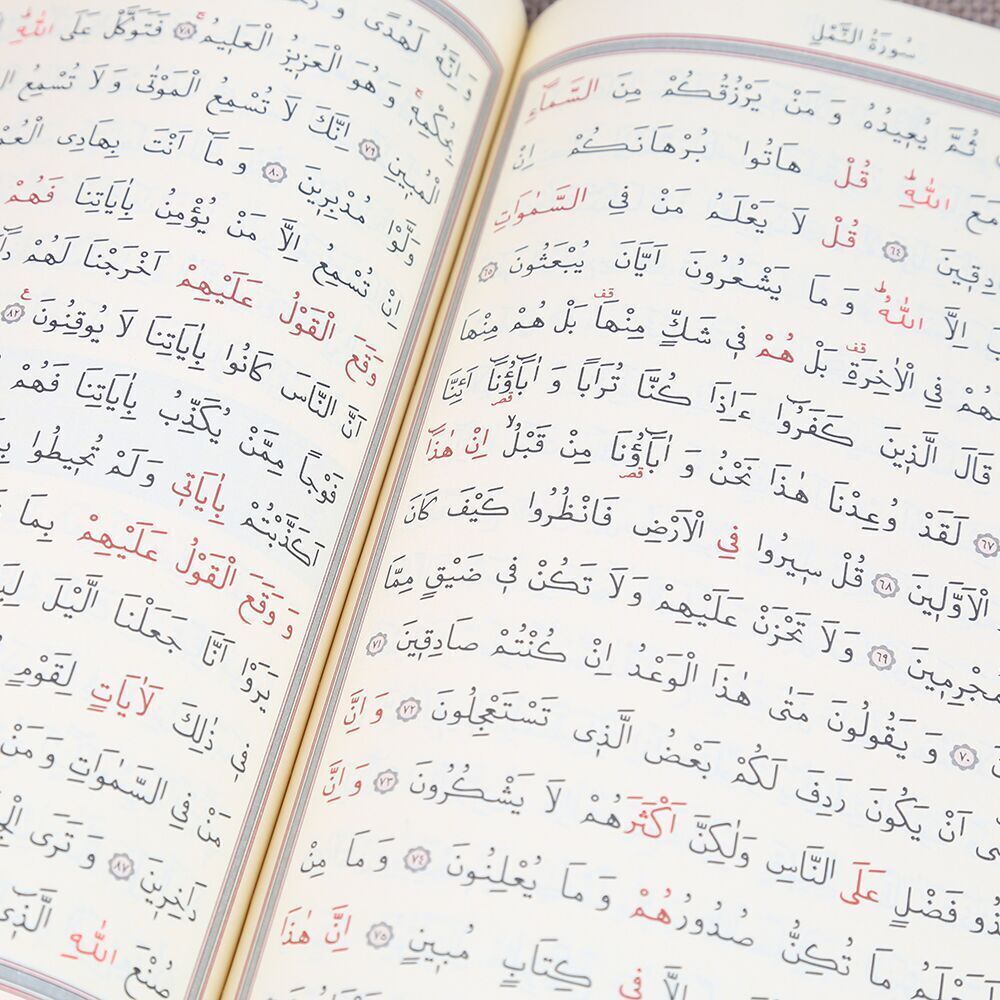 سُورَةُ النَّمْلِ
ثُمَّ يُعِيدُهُ وَ مَنْ يَرْزُقُكُمْ مِنَ السَّمَٓاءِ
اللّٰهِۜ قُلْ هَاتُوا بُرْهَانَكُمْ اِنْ
﴿٦٤﴾ قُلْ لَا يَعْلَمُ مَنْ فِي السَّمٰوَاتِ
اِلَّا اللّٰهُۜ وَ مَا يَشْعُرُونَ اَيَّانَ يُبْعَثُونَ ﴿٦٥﴾
فِي الْاٰخِرَةِ۠ بَلْ هُمْ ف۪ي شَكٍّ مِنْهَا۠ بَلْ هُمْ مِنْهَا
قَالَ الَّذ۪ينَ كَفَرُٓوا ءَاِذَا كُنَّا تُرَاباً وَ اٰبَٓاؤُ۬نَٓا اَئِنَّا
﴿٦٧﴾ لَقَدْ وُعِدْنَا هٰذَا نَحْنُ وَ اٰبَٓاؤُ۬نَا مِنْ قَبْلُۙ اِنْ هٰذَٓا
الْاَوَّل۪ينَ ﴿٦٨﴾ قُلْ س۪يرُوا فِي الْاَرْضِ فَانْظُرُوا كَيْفَ كَانَ
﴿٦٩﴾ وَلَا تَحْزَنْ عَلَيْهِمْ وَلَا تَكُنْ ف۪ي ضَيْقٍ مِمَّا
﴿٧٠﴾ وَ يَقُولُونَ مَتٰى هٰذَا الْوَعْدُ اِنْ كُنْتُمْ صَادِق۪ينَ ﴿٧١﴾
اَنْ يَكُونَ رَدِفَ لَكُمْ بَعْضُ الَّذ۪ي تَسْتَعْجِلُونَ ﴿٧٢﴾ وَ اِنَّ
فَضْلٍ عَلَى النَّاسِ وَلٰكِنَّ اَكْثَرَهُمْ لَا يَشْكُرُونَ ﴿٧٣﴾ وَ اِنَّ
مَا تُكِنُّ صُدُورُهُمْ وَ مَا يُعْلِنُونَ ﴿٧٤﴾ وَ مَا مِنْ
اِلَّا ف۪ي كِتَابٍ مُب۪ينٍ ﴿٧٥﴾ اِنَّ هٰذَا
وَ اِنَّهُ لَهُدًى وَ
بِحُكْمِه۪ۚ وَ هُوَ الْعَز۪يزُ الْعَل۪يمُۚ ﴿٧٨﴾ فَتَوَكَّلْ عَلَى اللّٰهِۜ
الْمُب۪ينِ ﴿٧٩﴾ اِنَّكَ لَا تُسْمِعُ الْمَوْتٰى وَلَا تُسْمِعُ
وَلَّوْا مُدْبِر۪ينَ ﴿٨٠﴾ وَ مَٓا اَنْتَ بِهَادِي
اِنْ تُسْمِعُ اِلَّا مَنْ يُؤْمِنُ بِاٰيَاتِنَا فَهُمْ
وَقَعَ الْقَوْلُ عَلَيْهِمْ اَخْرَجْنَا لَهُمْ
اَنَّ النَّاسَ كَانُوا بِاٰيَاتِنَا لَا يُوقِنُونَ۟ ﴿٨٢﴾
فَوْجاً مِمَّنْ يُكَذِّبُ بِاٰيَاتِنَا فَهُمْ
اَكَذَّبْتُمْ بِاٰيَات۪ي وَلَمْ تُح۪يطُوا
وَ وَقَعَ الْقَوْلُ عَلَيْهِمْ بِمَا
يَرَوْا اَنَّا جَعَلْنَا الَّيْلَ
ف۪ي ذٰلِكَ لَاٰيَاتٍ لِقَوْمٍ
مَنْ فِي السَّمٰوَاتِ وَ مَنْ
دَاخِر۪ينَ ﴿٨٧﴾ وَ تَرَى
صُنْعَ اللّٰهِ الَّذ۪ٓي